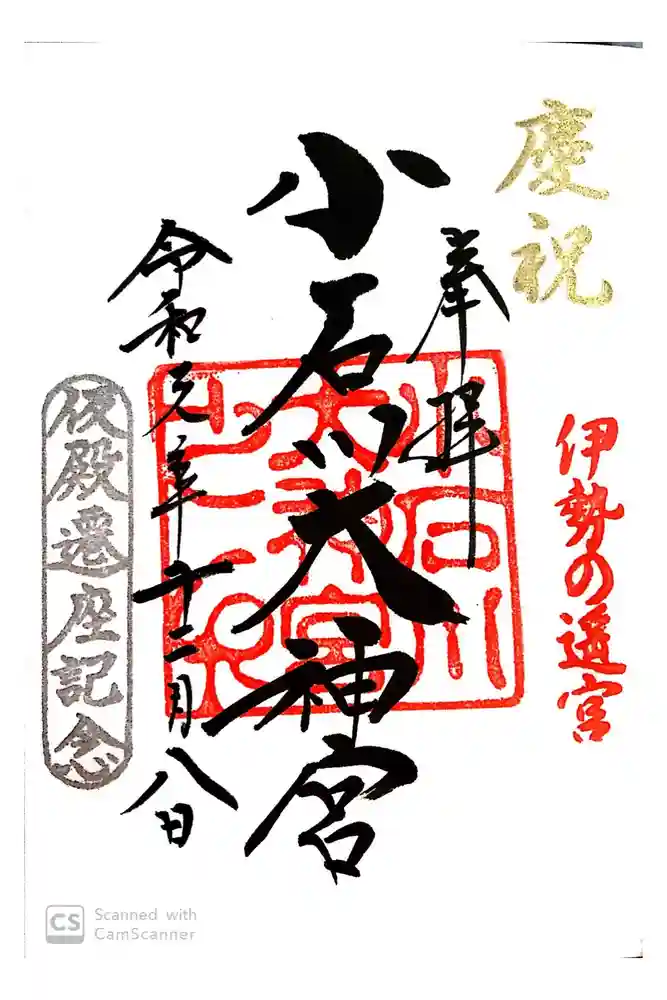 慶祝
伊勢の遥宮
奉拝
小石川大神宮
小石川
大神宮
之印
令和元年十二月八日
仮殿遷座記念
CS Scanned with
CamScanner